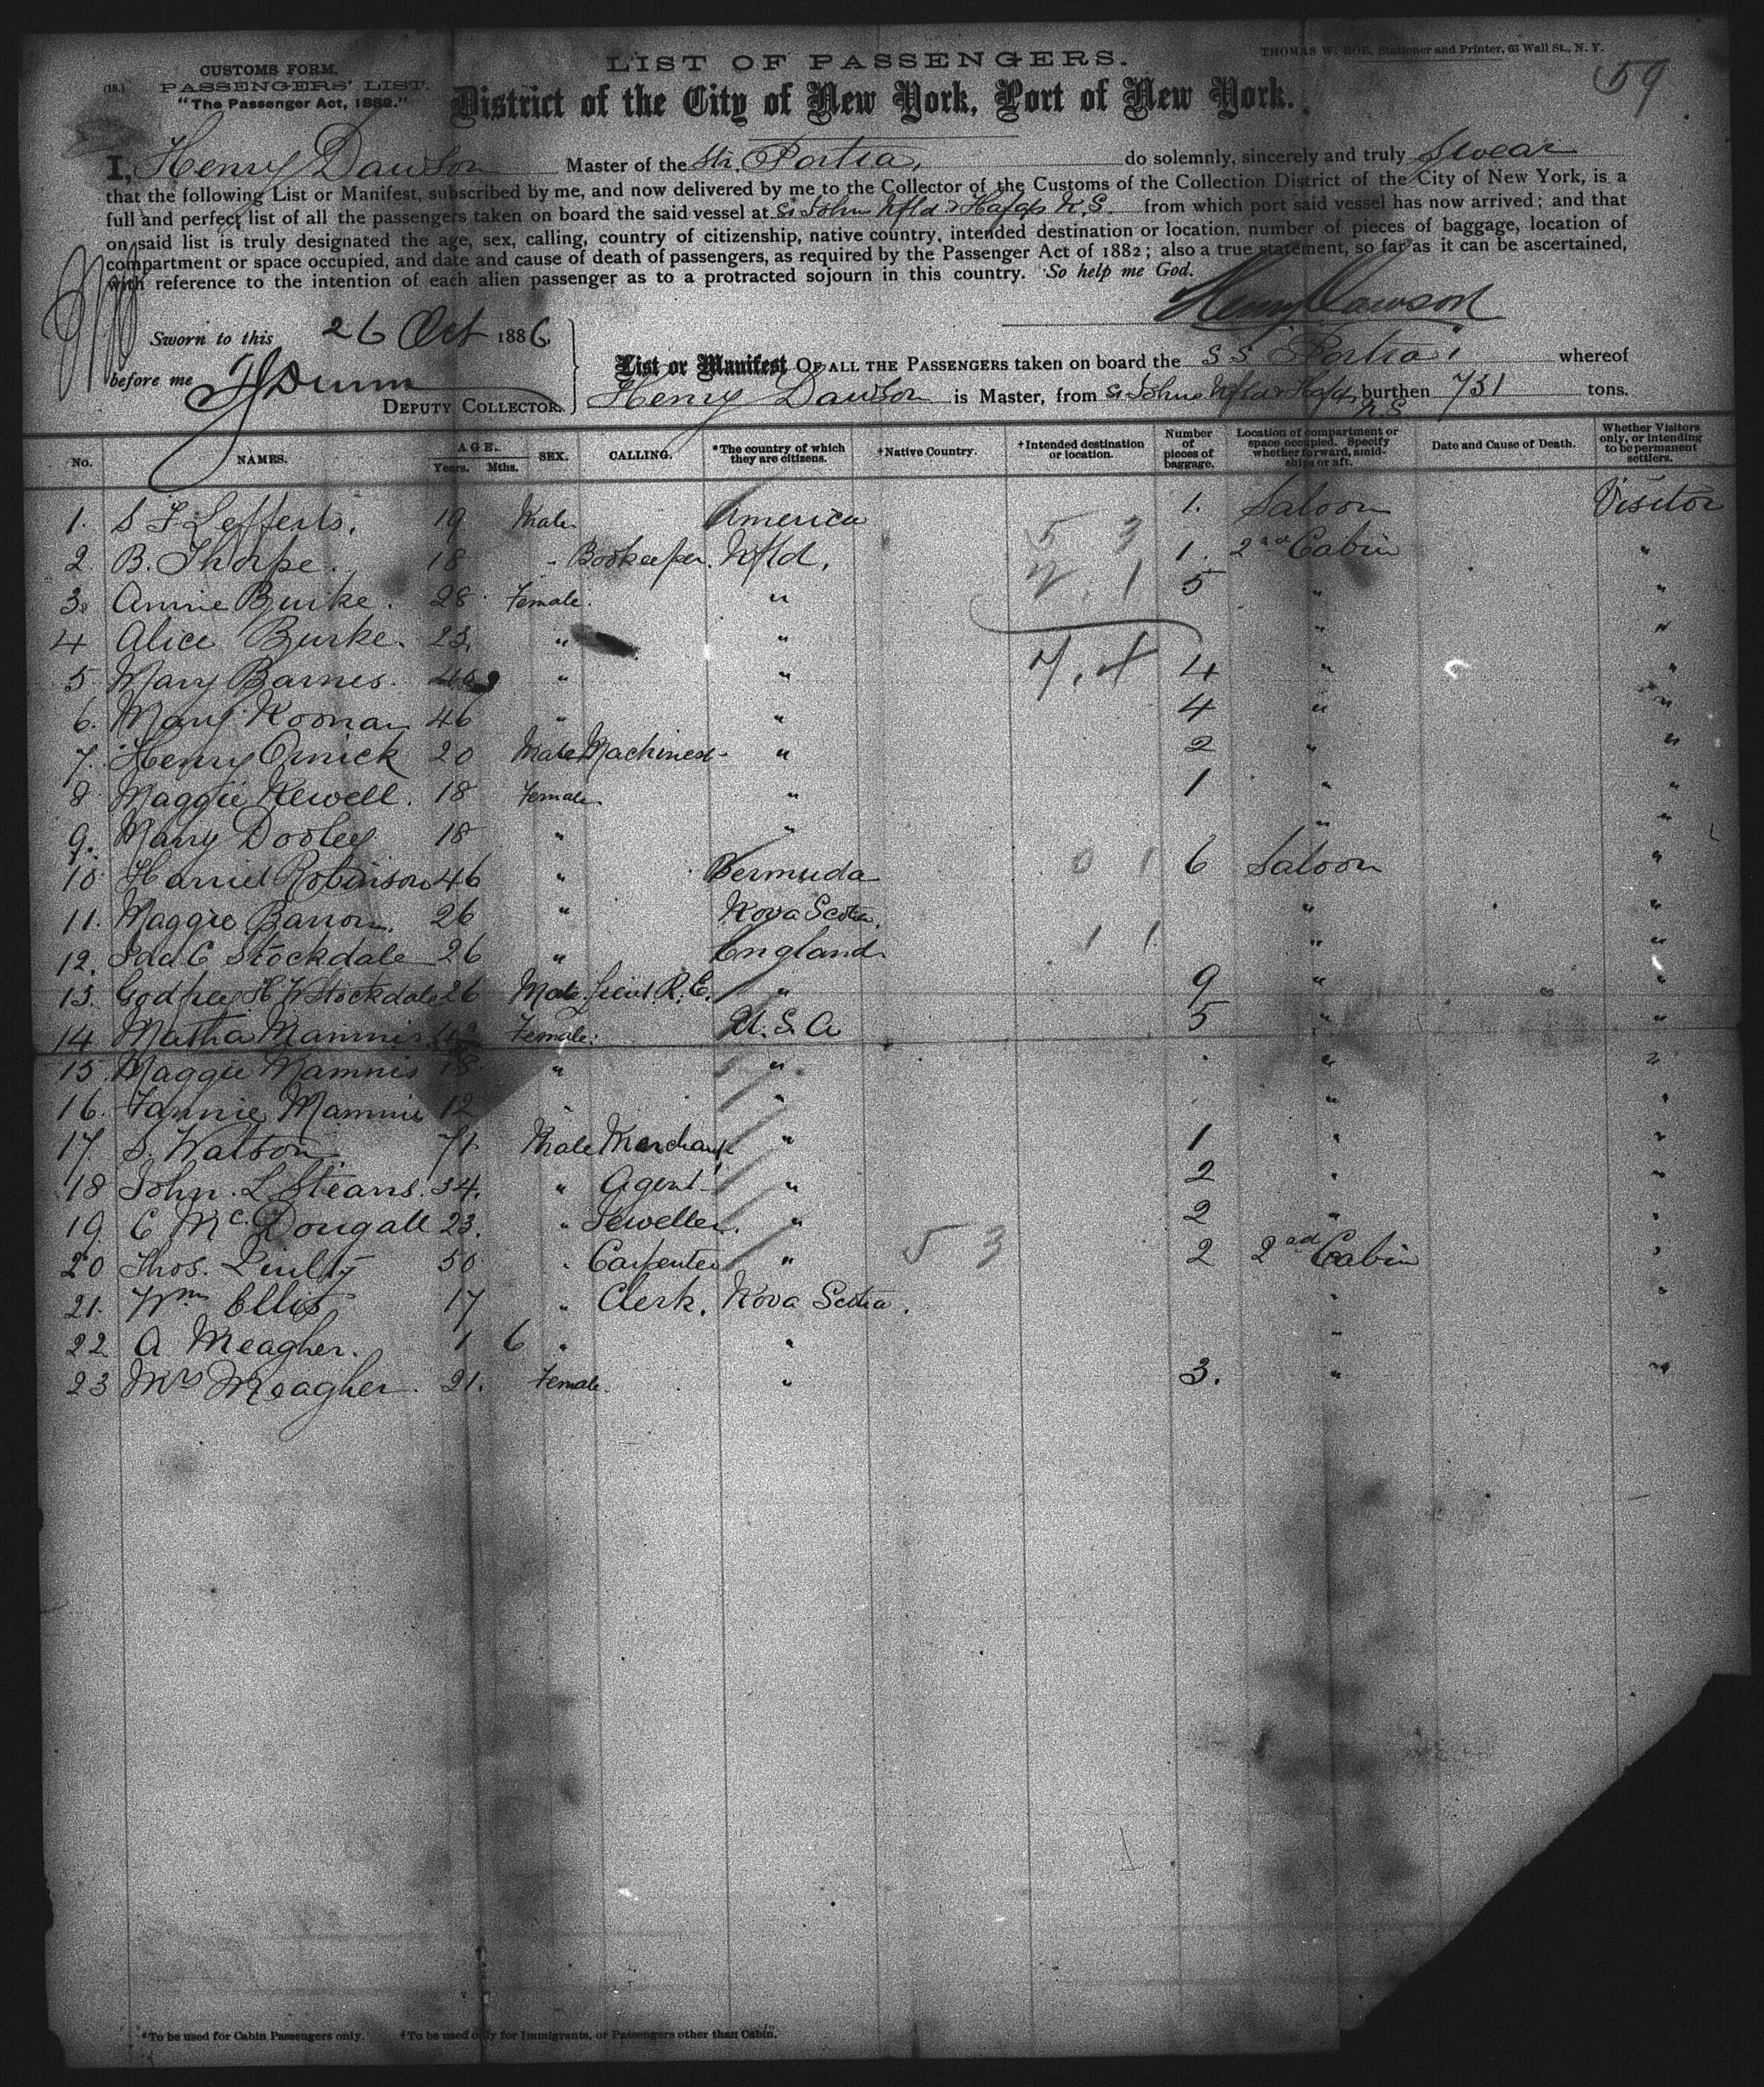 LIST OF PASSENGERS.
THOMAS W. ROE, Stationer and Printer, 63 Wall St., N. Y.
59
CUSTOMS FORM.
(18.) PASSENGERS' LIST.
"The Passenger Act, 1882."
District of the City of New York, Port of New York.
I, Henry Dawson Master of the Str. Portia, do solemnly, sincerely and truly Swear
that the following List or Manifest, subscribed by me, and now delivered by me to the Collector of the Customs of the Collection District of the City of New York, is a
full and perfect list of all the passengers taken on board the said vessel at St Johns Nfld & Hafax N.S. from which port said vessel has now arrived; and that
on said list is truly designated the age, sex, calling, country of citizenship, native country, intended destination or location, number of pieces of baggage, location of
compartment or space occupied, and date and cause of death of passengers, as required by the Passenger Act of 1882; also a true statement, so far as it can be ascertained,
with reference to the intention of each alien passenger as to a protracted sojourn in this country. So help me God.
Henry Dawson
Sworn to this 26 Oct 1886
before me Dunn
DEPUTY COLLECTOR.
List or Manifest OF ALL THE PASSENGERS taken on board the S S Portia whereof
Henry Dawson is Master, from St Johns Nfld & Hafax N.S. burthen 731 tons.
No. NAMES. AGE. Years. Mths. SEX. CALLING. *The country of which they are citizens. †Native Country. †Intended destination or location. Number of pieces of baggage. Location of compartment or space occupied. Specify whether forward, amidships or aft. Date and Cause of Death. Whether Visitors only, or intending to be permanent settlers.
1. S F Lefferts. 19 Male America 1. Saloon Visitor
2. B. Thorpe. 18 " Bookeeper. Nfld. 1. 2nd Cabin "
3. Annie Burke. 28 Female. " 5 " "
4 Alice Burke. 23. " " " "
5 Mary Barnes. " " 4 " "
6. Mary Noonan 46 " " 4 " "
7. Henry 20 Male Machinest " 2 " "
8 Maggie Kewell. 18 Female. " 1 " "
9. Mary Dooley 18 " " " "
10 Harriet Robinson 46 " Bermuda 6 Saloon "
11. Maggie Barron. 26 " Nova Scotia. " "
12. Ida C Stockdale 26 " England " "
13. Godfrey H V Stockdale 26 Male Lieut. R.E. " 9 " "
14 Matha Mamnis Female. U.S.A 5 " "
15. Maggie Mamnis 18 " " " "
16. Fannie Mamnis 12 " " " "
17. S. Watson. 71 Male Merchant " 1 " "
18 John. L Stears. 34. " Agent " 2 " "
19. C Mc. Dougall 23. " Jeweller. " 2 " "
20 Thos. 50 " Carpenter " 2 2nd Cabin "
21. Wm Ellis 17 " Clerk. Nova Scotia. " "
22 A Meagher. 1 6 " " "
23 Mrs Meagher. 21. Female. " 3. " "
*To be used for Cabin Passengers only. †To be used only for Immigrants, or Passengers other than Cabin.